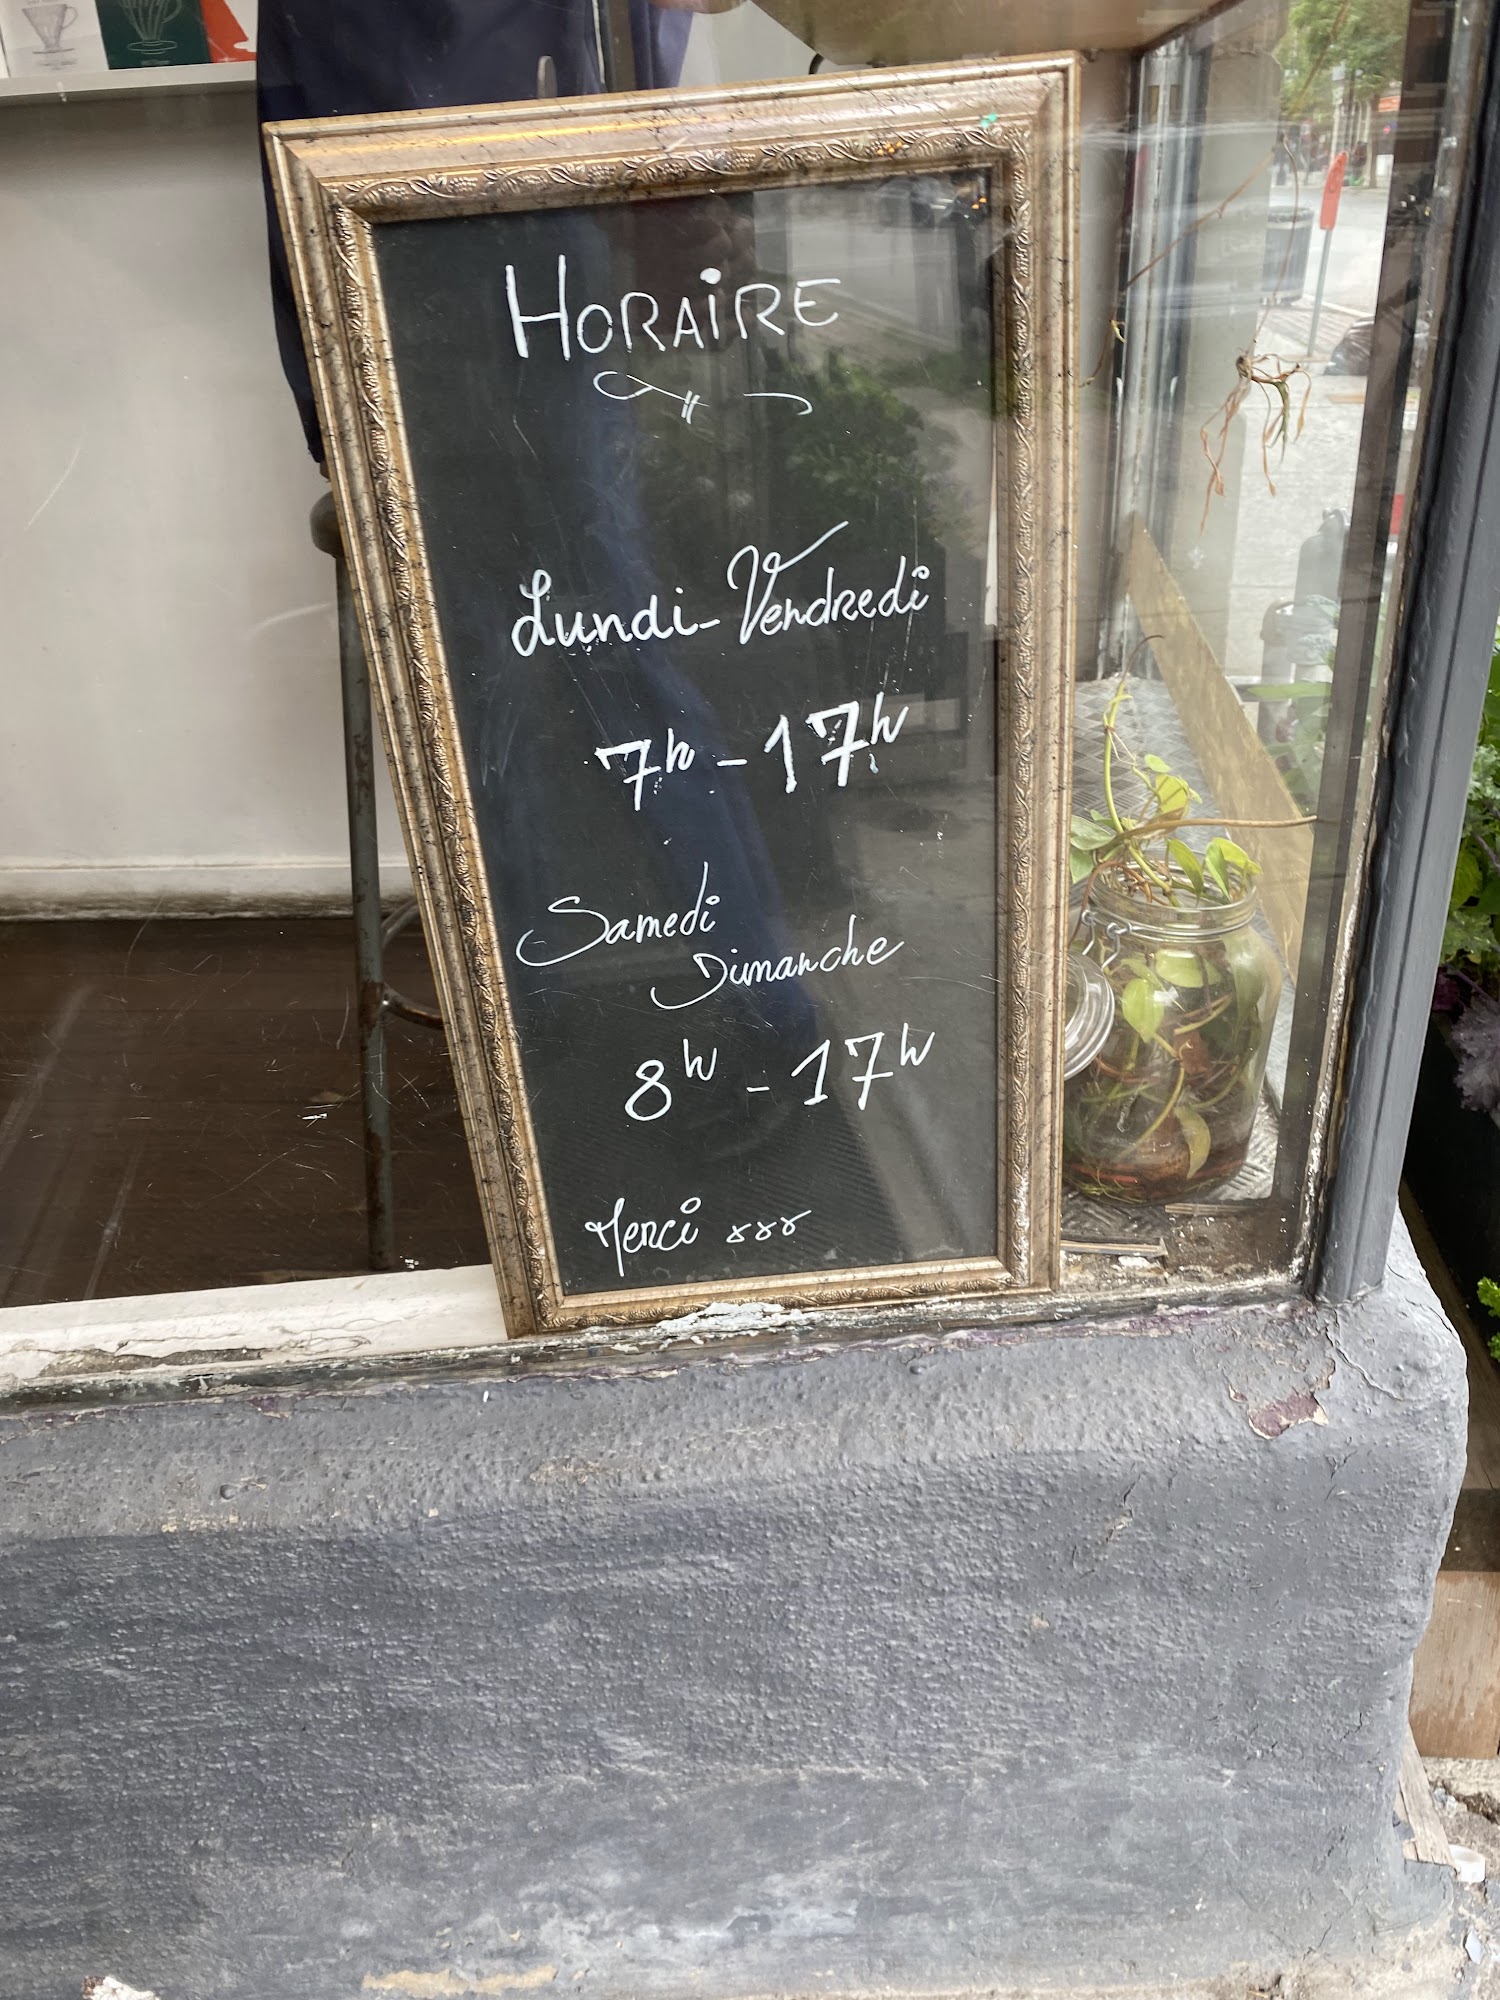 HORAIRE
Lundi - Vendredi
7h - 17h
Samedi
Dimanche
8h - 17h
Merci xxx